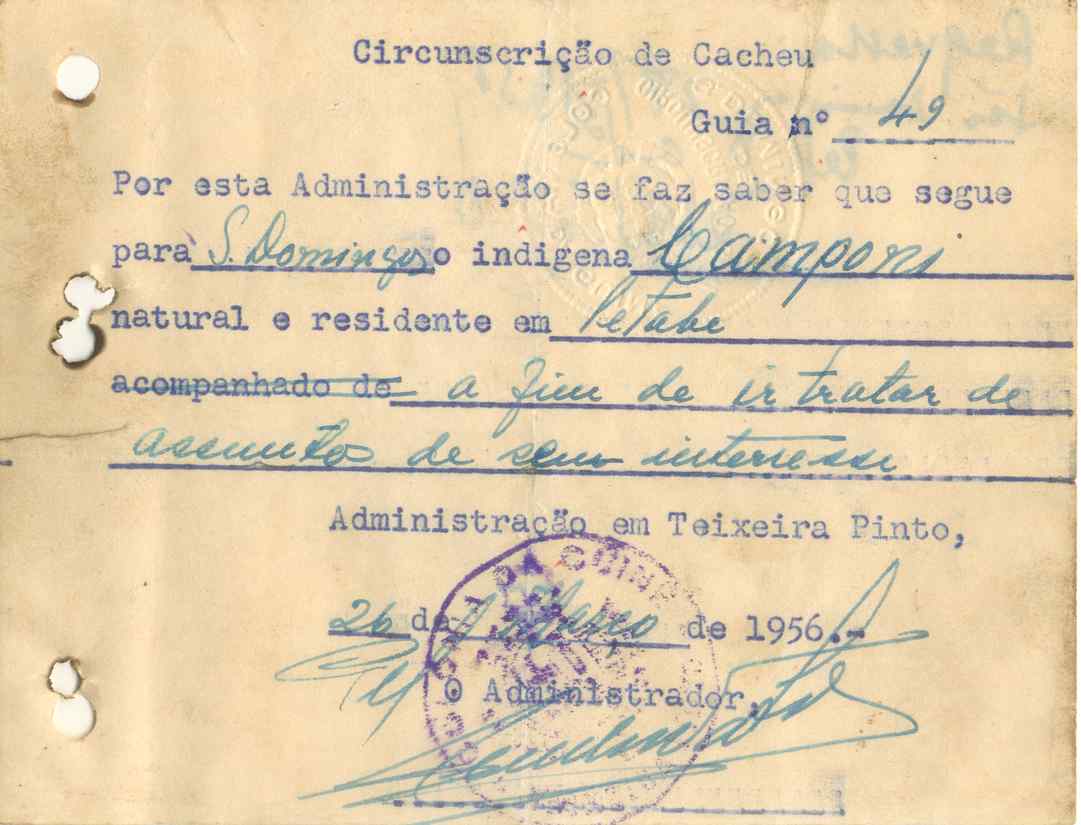 Circunscrição de Cacheu
Guia nº 49
Por esta Administração se faz saber que segue
para S. Domingos o indigena
natural e residente em
acompanhado de a fim de ir tratar de
assuntos de seu interesse
Administração em Teixeira Pinto,
26 de Março de 1956.-
O Administrador,
DA GUINÉ